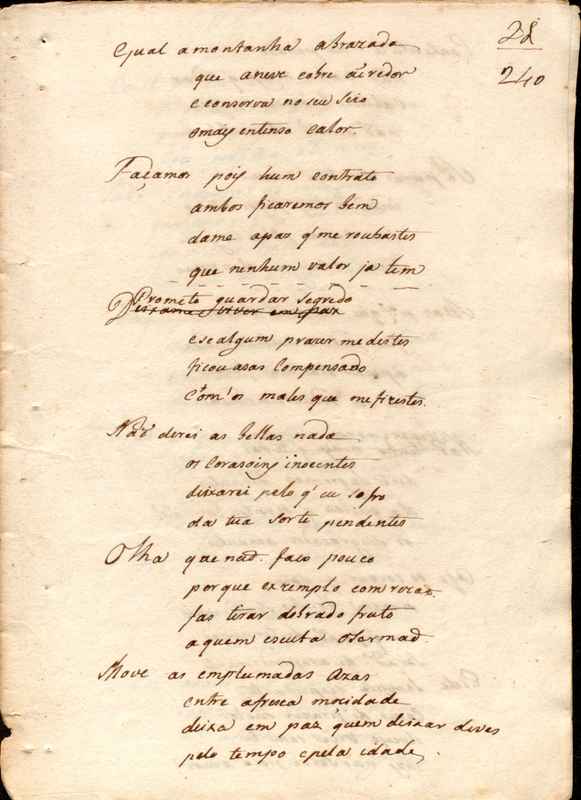 28
240
Qual amontanha abrazada
que aneve cobre aõ redor
e conserva no seu seio
omais entenso calor.
Façamos pois hum contrato
ambos ficaremos bem
dame apaz q' me roubastes
que nenhum valor ja tem
Prometo guardar segredo
Deixame viver em paz
e se algum prazer me destes
ficou asas Compensado
Com os males que me fizestes.
Naõ direi as bellas nada
os Corasoins inocentes
deixarei pelo q' eu sofro
da tua sorte pendentes
Olha que naõ faço pouco
porque exemplo com rezaõ
faz tirar dobrado fruto
a quem escuta oSermaõ.
Move as emplumadas azas
entre afresca mocidade
deixa em paz quem deixar deves
pelo tempo epela idade,